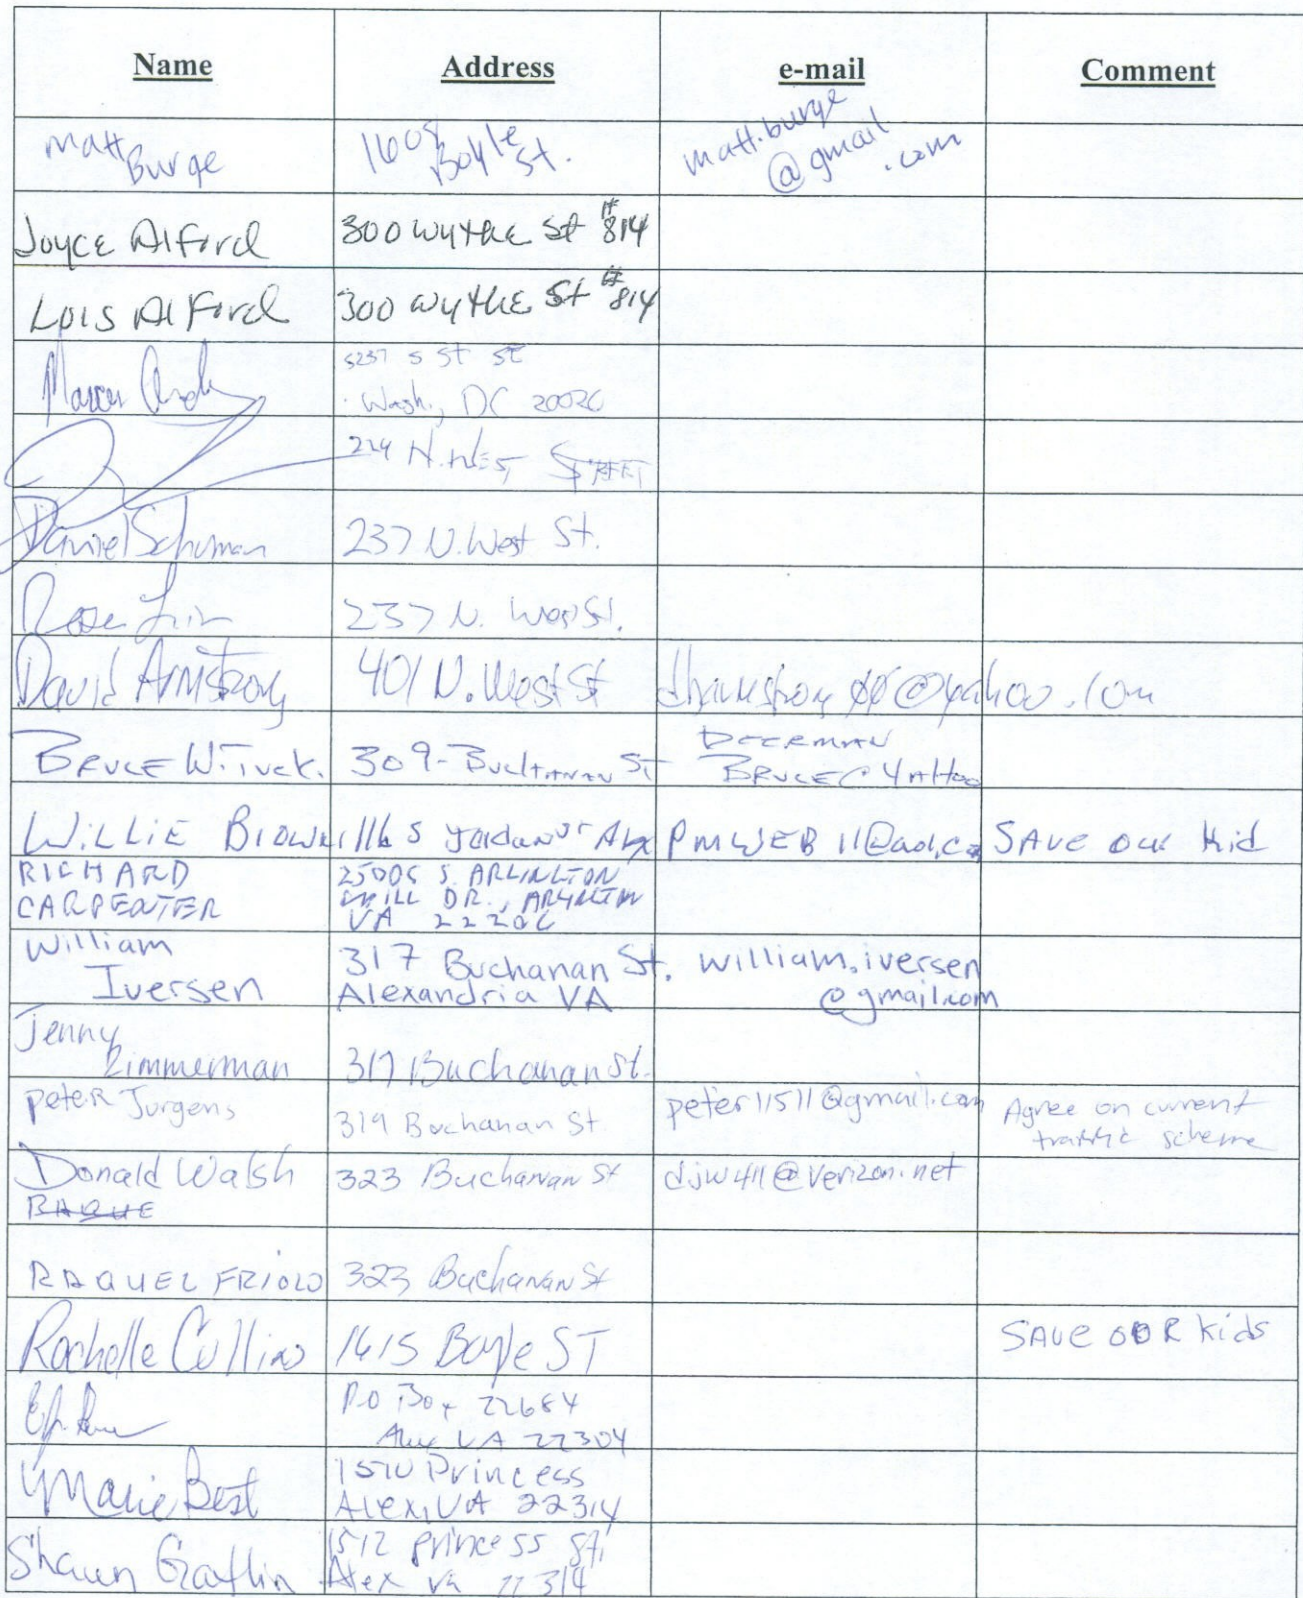 Name Address e-mail Comment
Matt Burge 1605 Boyle St. matt.burge @gmail .com
Joyce Alford 300 Wythe St #814
Lois Alford 300 Wythe St #814
5237 S St SE
Wash., DC 20020
224 N. West STREET
Daniel Schuman 237 N. West St.
Rose 237 N. West St.
David Armstrong 401 N. West St @yahoo.com
BRUCE W. Tuck. 309 - Buchanan St DEERMAN
BRUCE@ YAHOO
WiLLiE Brown 1116 S Jordan St Alx PMWEB11@aol.co SAVE our kid
RICHARD CARPENTER S. ARLINGTON
MILL DR., ARLINGTON
VA 22206
William Iversen 317 Buchanan St. william.iversen
Alexandria VA @gmail.com
Jenny Zimmerman 317 Buchanan St.
Peter Jurgens 319 Buchanan St. peter11511@gmail.com Agree on current
traffic scheme
Donald Walsh 323 Buchanan St djw411@verizon.net
RAQUE
RAQUEL FRIOLO 323 Buchanan St
Rochelle Collins 1615 Boyle ST SAVE OUR kids
P.O Box 22684
Alex VA 22304
Marie Best 1510 Princess
Alex, VA 22314
Shaun Gatlin 1512 princess St,
Alex va 22314